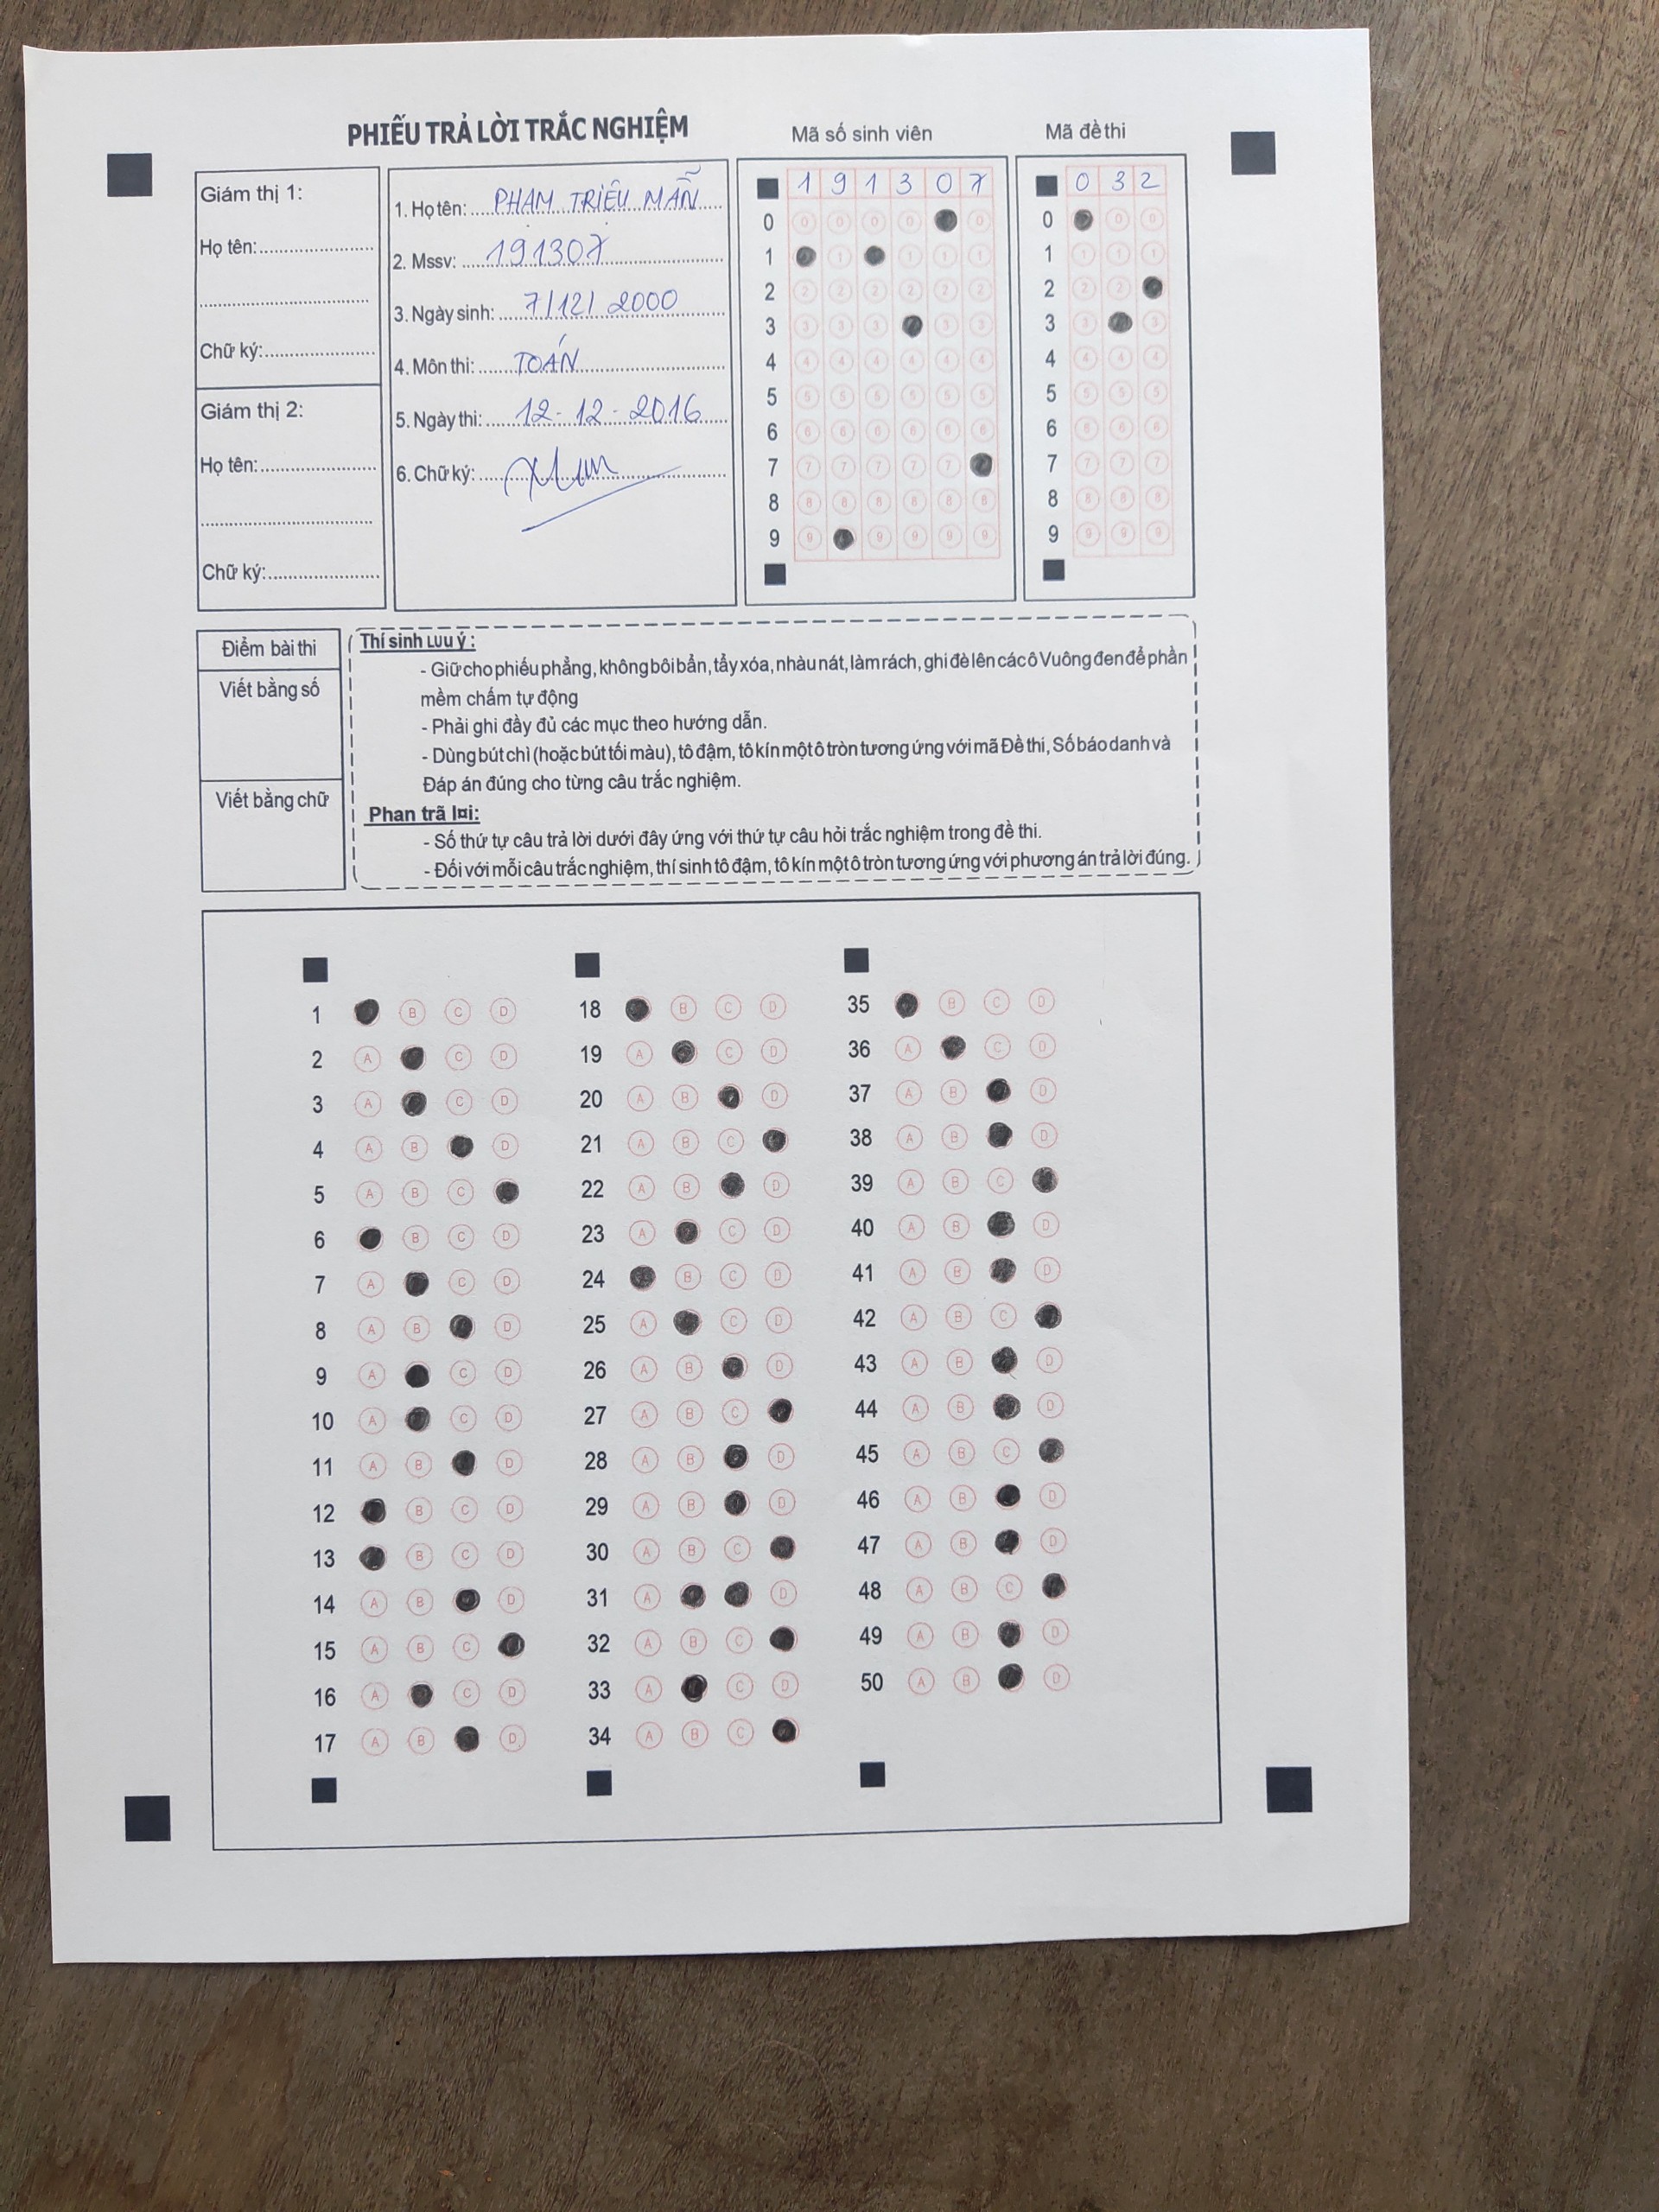 PHIẾU TRẢ LỜI TRẮC NGHIỆM
Mã số sinh viên
Mã đề thi
Giám thị 1:
Họ tên:
Chữ ký:
Giám thị 2:
Họ tên:
Chữ ký:
1. Họ tên: PHẠM TRIỆU MẪN
2. Mssv: 191307
3. Ngày sinh: 7/12/2000
4. Môn thi: TOÁN
5. Ngày thi: 12-12-2016
6. Chữ ký:
1 9 1 3 0 7
0 0 0 0 0 0
1 1 1 1 1
2 2 2 2 2 2 2
3 3 3 3 3 3
4 4 4 4 4 4 4
5 5 5 5 5 5 5
6 6 6 6 6 6 6
7 7 7 7 7 7
8 8 8 8 8 8 8
9 9 9 9 9 9
0 3 2
0 0 0
1 1 1 1
2 2 2
3 3 3
4 4 4 4
5 5 5 5
6 6 6 6
7 7 7 7
8 8 8 8
9 9 9 9
Điểm bài thi
Viết bằng số
Viết bằng chữ
Thí sinh LƯU ý :
- Giữ cho phiếu phẳng, không bôi bẩn, tẩy xóa, nhàu nát, làm rách, ghi đè lên các ô Vuông đen để phần
mềm chấm tự động
- Phải ghi đầy đủ các mục theo hướng dẫn.
- Dùng bút chì (hoặc bút tối màu), tô đậm, tô kín một ô tròn tương ứng với mã Đề thi, Số báo danh và
Đáp án đúng cho từng câu trắc nghiệm.
Phan trã l¤i:
- Số thứ tự câu trả lời dưới đây ứng với thứ tự câu hỏi trắc nghiệm trong đề thi.
- Đối với mỗi câu trắc nghiệm, thí sinh tô đậm, tô kín một ô tròn tương ứng với phương án trả lời đúng.
1 B C D
2 A C D
3 A C D
4 A B D
5 A B C
6 B C D
7 A C D
8 A B D
9 A C D
10 A C D
11 A B D
12 B C D
13 B C D
14 A B D
15 A B C
16 A C D
17 A B D
18 B C D
19 A C D
20 A B D
21 A B C
22 A B D
23 A C D
24 B C D
25 A C D
26 A B D
27 A B C
28 A B D
29 A B D
30 A B C
31 A D
32 A B C
33 A C D
34 A B C
35 B C D
36 A C D
37 A B D
38 A B D
39 A B C
40 A B D
41 A B D
42 A B C
43 A B D
44 A B D
45 A B C
46 A B D
47 A B D
48 A B C
49 A B D
50 A B D